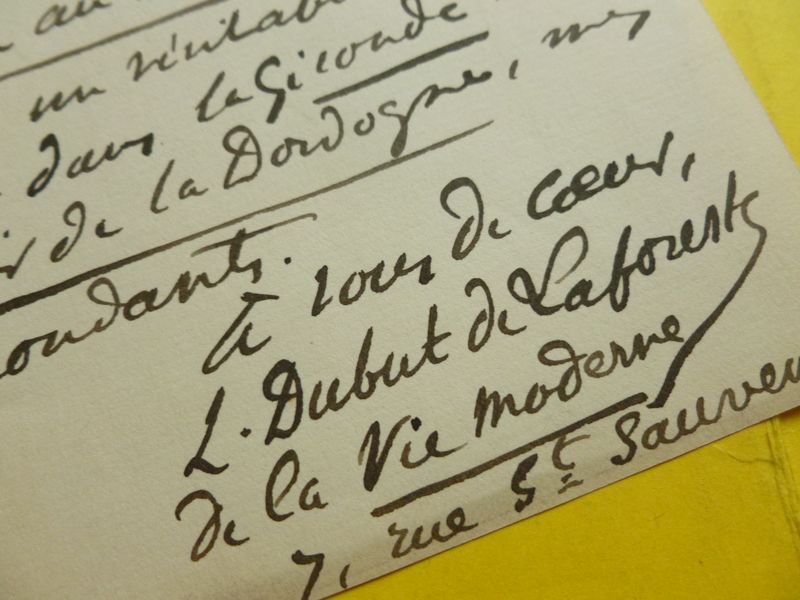 au
un véritab
dans la Gironde
de la Dordogne, mes
ondants.
à vous de cœur,
L. Dubut de Laforest
de la Vie moderne
7, rue St Sauveu